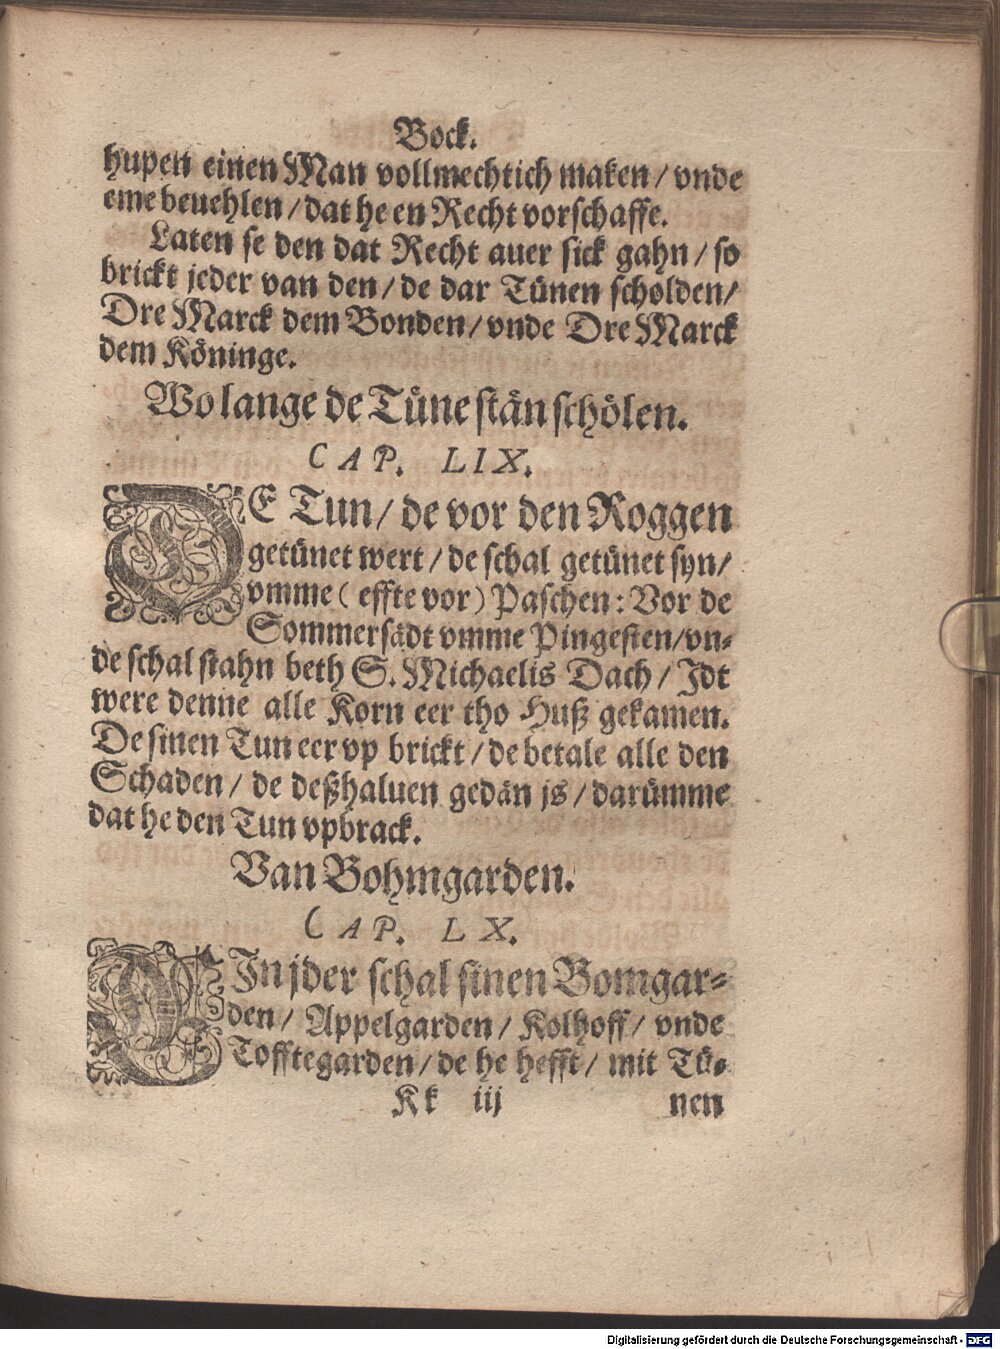 Bock.
hupen einen Man vollmechtich maken / vnde
eme beuehlen / dat he en Recht vorschaffe.
Laten se den dat Recht auer sick gahn / so
brickt jeder van den / de dar Tünen scholden /
Dre Marck dem Bonden / vnde Dre Marck
dem Köninge.
Wo lange de Tüne stän schölen.
CAP. LIX.
DE Tun / de vor den Roggen
getünet wert / de schal getünet syn /
vmme ( effte vor ) Paschen : Vor de
Sommersädt vmme Pingesten / vn-
de schal stahn beth S. Michaelis Dach / Jdt
were denne alle Korn eer tho Huß gekamen.
De sinen Tun eer vp brickt / de betale alle den
Schaden / de deßhaluen gedän js / darümme
dat he den Tun vpbrack.
Van Bohmgarden.
CAP. LX.
EIn jder schal sinen Bomgar-
den / Appelgarden / Kolhoff / vnde
Tofftegarden / de he hefft / mit Tü-
Kk iij nen
Digitalisierung gefördert durch die Deutsche Forschungsgemeinschaft - DFG